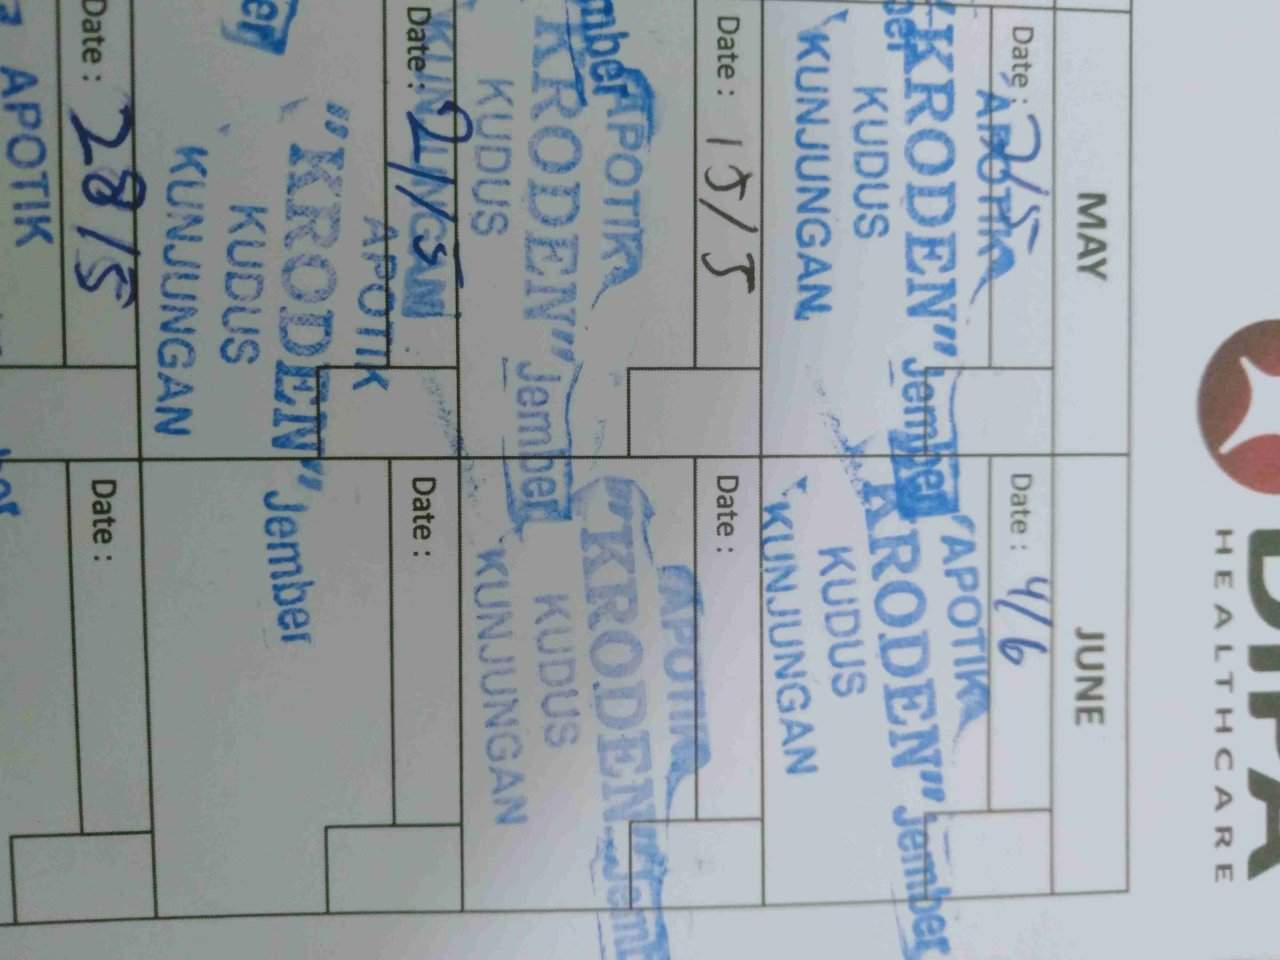 DIPA
HEALTHCARE
MAY
JUNE
Date : 2/5
Date : 4/6
APOTIK
APOTIK
"KRODEN" Jember
KRODEN" Jember
KUDUS
KUDUS
KUNJUNGAN
KUNJUNGAN
Date : 15/5
Date :
mber
APOTIK
APOTIK
"KRODEN" Jember
"KRODEN" Jemb
KUDUS
KUDUS
KUNJUNGAN
KUNJUNGAN
Date :
Date :
KUNJUNGAN
APOTIK
"KRODEN" Jember
KUDUS
KUNJUNGAN
Date : 28/5
Date :
APOTIK